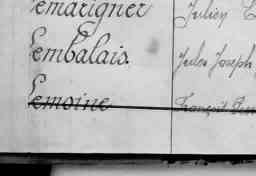 Lemarignier Julien
Lembalais. Jules Joseph
Lemoine François